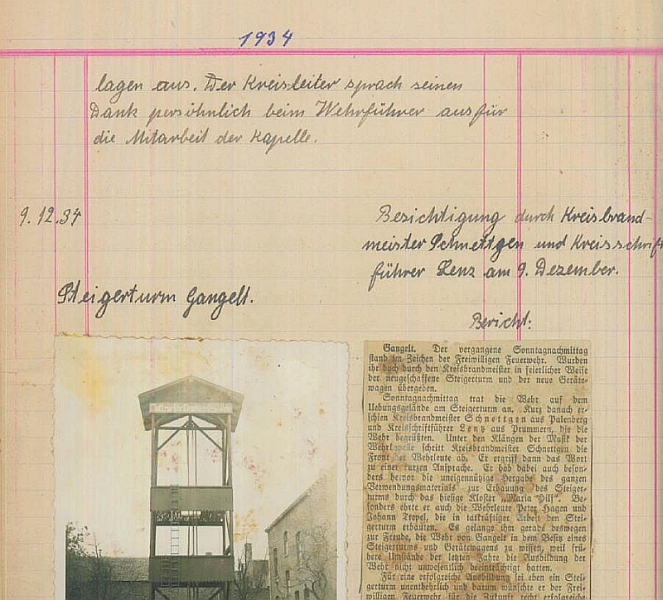 1934
lagen aus. Der Kreisleiter sprach seinen
Dank persöhnlich beim Wehrführer aus für
die Mitarbeit der Kapelle.
9.12.34
Besichtigung durch Kreisbrand-
meister Schnettgen und Kreisschrift
führer Lenz am 9. Dezember.
Steigerturm Gangelt.
Bericht:
Gangelt. Der vergangene Sonntagnachmittag
stand im Zeichen der Freiwilligen Feuerwehr. Wurden
ihr doch durch den Kreisbrandmeister in feierlicher Weise
der neugeschaffene Steigerturm und der neue Geräte-
wagen übergeben.
Sonntagnachmittag trat die Wehr auf dem
Uebungsgelände am Steigerturm an. Kurz danach er-
schien Kreisbrandmeister Schnettgen aus Palenberg
und Kreisschriftführer Lenz aus Prummern, die die
Wehr begrüßten. Unter den Klängen der Musik der
Wehrkapelle schritt Kreisbrandmeister Schnettgen die
Front der Wehrleute ab. Er ergriff dann das Wort
zu einer kurzen Ansprache. Er hob dabei auch beson-
ders hervor die uneigennützige Hergabe des ganzen
Verwendungsmaterials zur Erbauung des Steiger-
turms durch das hiesige Kloster „Maria Hilf". Be-
sonders ehrte er auch die Wehrleute Peter Hagen und
Johann Tropel, die in tatkräftiger Arbeit den Stei-
gerturm erbauten. Es gelang ihm gerade deswegen
zur Freude, die Wehr von Gangelt in dem Besitz eines
Steigerturms und Gerätewagens zu wissen, weil frü-
here Umstände der letzten Jahre die Ausbildung der
Wehr nicht unwesentlich beeinträchtigt hatten.
Für eine erfolgreiche Ausbildung sei eben ein Stei-
gerturm unentbehrlich und darum wünschte er der Frei-
willigen Feuerwehr für die Zukunft recht erfolgreiche